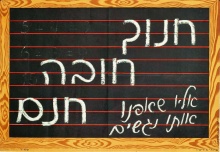 חנוך
חובה
חנם
אליו שאפנו
אותו נגשים